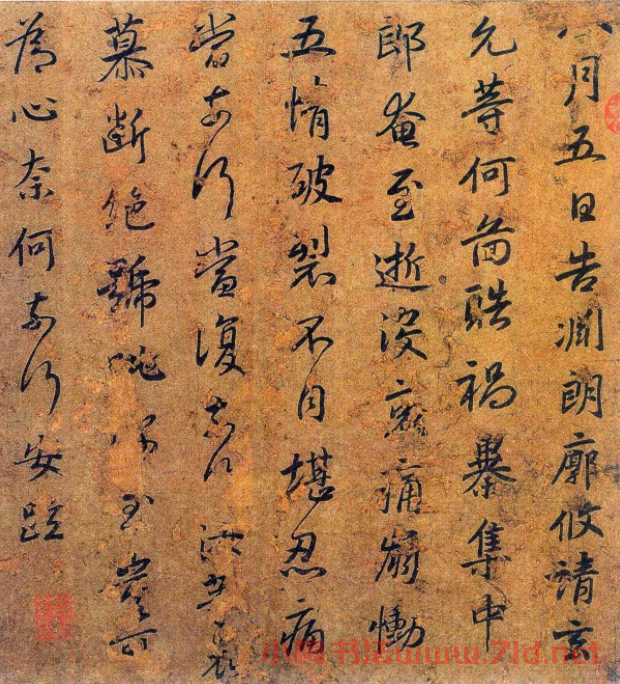 八月五日告淵朗廓攸靖玄
允等何圖酷禍暴集中
郎奄至逝沒哀痛崩慟
五情破裂不自堪忍痛
當奈何當復奈何汝等哀
慕斷絕號咷深至豈可
為心奈何奈何安疏
书法www.7ld.net